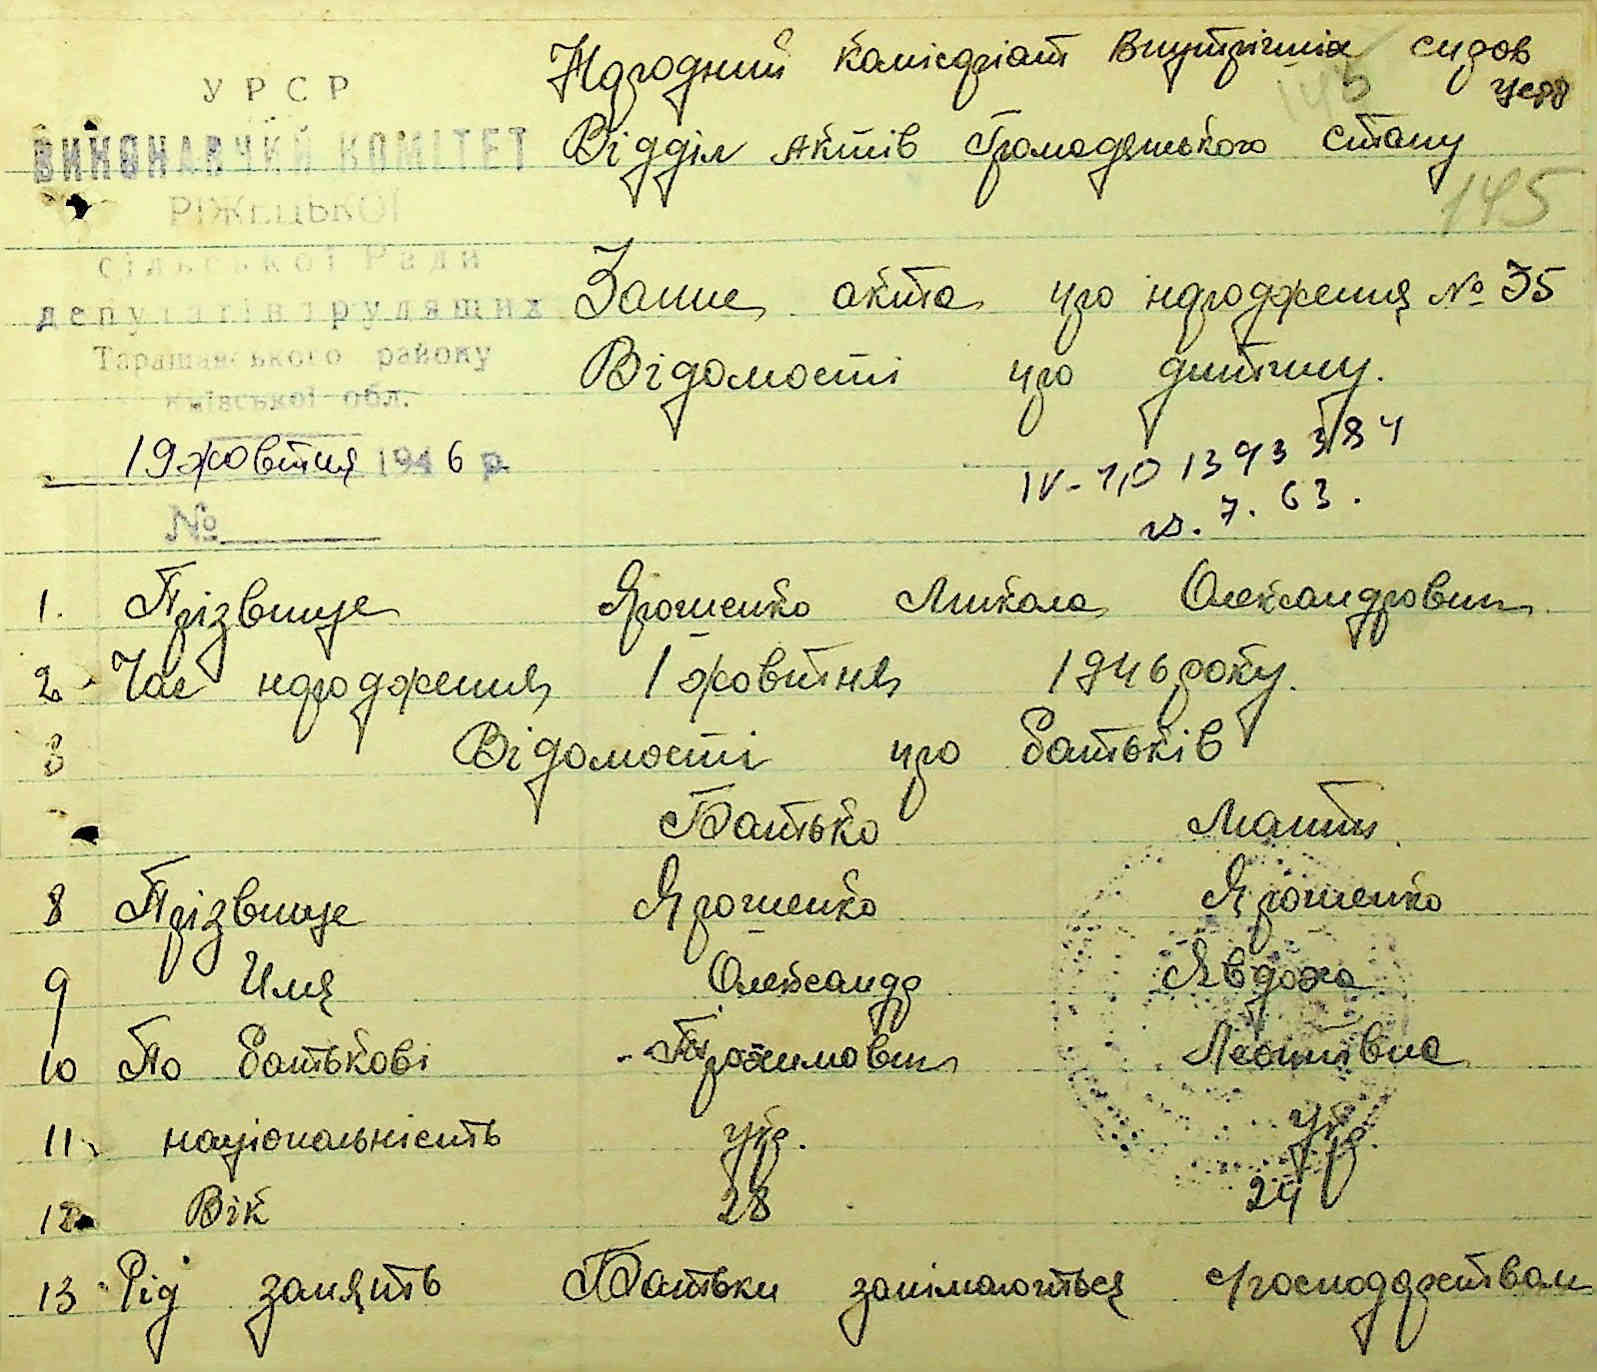 УРСР
ВИКОНАВЧИЙ КОМІТЕТ
РІЖЕЦЬКОЇ
сільської Ради
депутатів трудящих
Таращанського району
Київської обл.
19 жовтня 1946 р.
№
Народний Комісаріат Внутрішніх справ
УСРР
Відділ Актів Громадянського стану
145
145
Запис акта про народження № 35
Відомості про дитину.
7. 63.
1. Прізвище Ярошенко Микола Олександрович
2 Час народження 1 жовтня 1946 року.
3 Відомості про батьків
Батько Мати.
8 Прізвище Ярошенко Ярошенко
9 Имя Олександр Явдоха
10 По батькові Трохимович Леонтівна
11 національність укр. укр.
12 Вік 28 24
13 Рід занять Батьки занімаються господарством